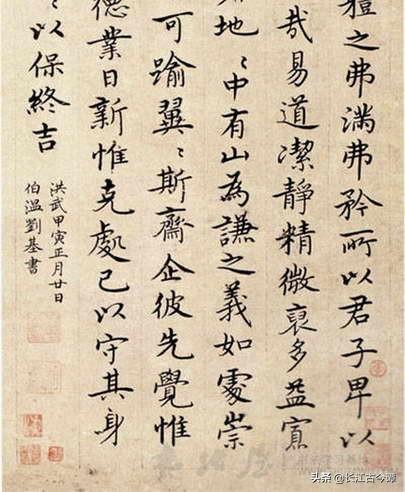 豊之弗滿弗矜所以君子卑以
哉易道潔靜精微裒多益寡
地〻中有山為謙之義如處崇
可踰翼〻斯齋企彼先覺惟
德業日新惟克處己以守其身
〻以保終吉
洪武甲寅正月廿日
伯溫劉基書
头条 @长江古今源